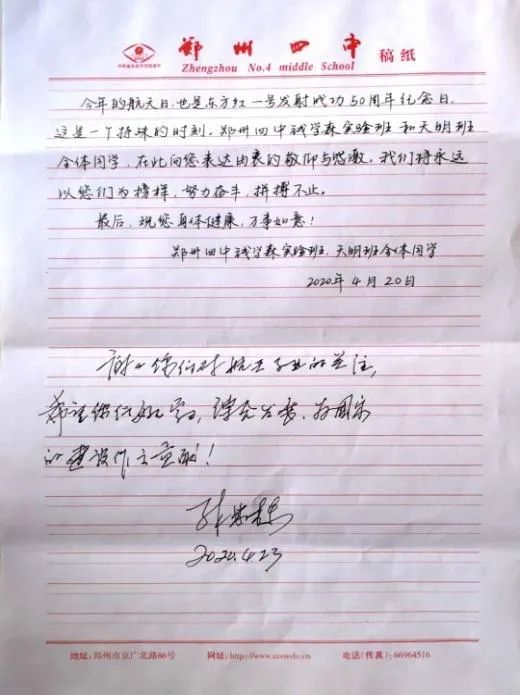 郑州四中 稿纸
Zhengzhou No.4 middle School
今年的航天日,也是东方红一号发射成功50周年纪念日。
这是一个特殊的时刻。郑州四中钱学森实验班和天明班
全体同学,在此向您表达由衷的敬仰与感激。我们将永远
以您们为榜样,努力奋斗,拼搏不止。
最后,祝您身体健康,万事如意!
郑州四中钱学森实验班、天明班全体同学
2020年4月20日
谢谢你们对航天事业的关注,
希望你们好好学习,将来为国家
的建设作出贡献!
2020.4.23
地址:郑州市京广北路86号 网址:http://www.zzsz.edu.cn 电话(传真):66964516